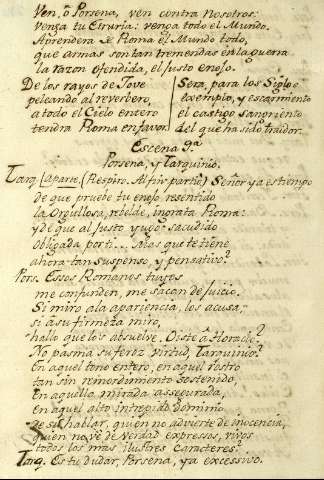 Ven, ô Porsena, ven contra nosotros:
venga tu Etruria: venga todo el Mundo.
Aprendera de Roma el Mundo todo,
que armas son tan tremendas en la guerra
la razon ofendida, el justo enojo.
De los rayos de Jove
peleando al reverbero,
a todo el Cielo entero
tendra Roma en favor.
Sera, para los Siglos
exemplo, y escarmiento
el castigo sangriento
del que ha sido traidor.
Escena 9.ª
Porsena, y Tarquinio.
Tarq. (aparte. (Respiro. Al fin partiò.) Señor ya es tiempo
de que pruebe tu enojo resentido
la Orgullosa, rebelde, ingrata Roma:
y de que al justo yugo sacudido
obligada por ti... Mas que te tiene
ahora tan suspenso, y pensativo?
Pors. Essos Romanos tuyos
me confunden, me sacan de juicio.
Si miro a la apariencia, los acusa;
si â su firmeza miro,
hallo que los absuelve. Oiste â Horacio?
No pasma su feroz virtud, Tarquinio?
En aquel tono entero, en aquel rostro
tan sin remordimiento sostenido,
en aquella mirada assegurada,
en aquel alto intrepido dominio
de su hablar, quien no advierte de inocencia,
quien no vè de verdad expressos, vivos
todos los mas ilustres caracteres?
Tarq. Es tu dudar, Porsena, ya excessivo.